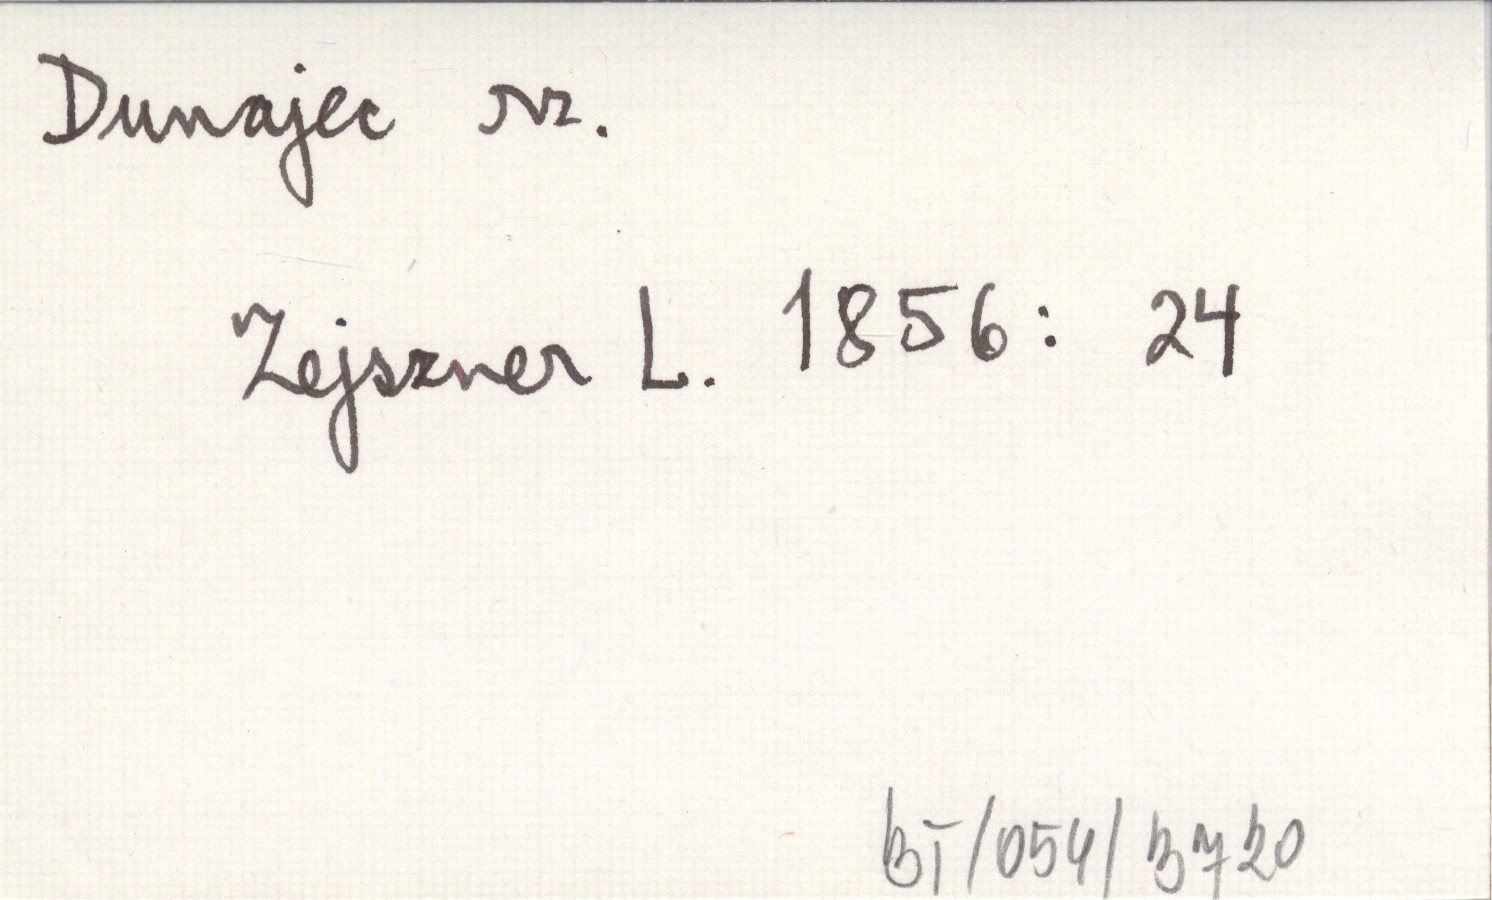 Dunajec rz.
Zejszner L. 1856: 24
BT/054/3720